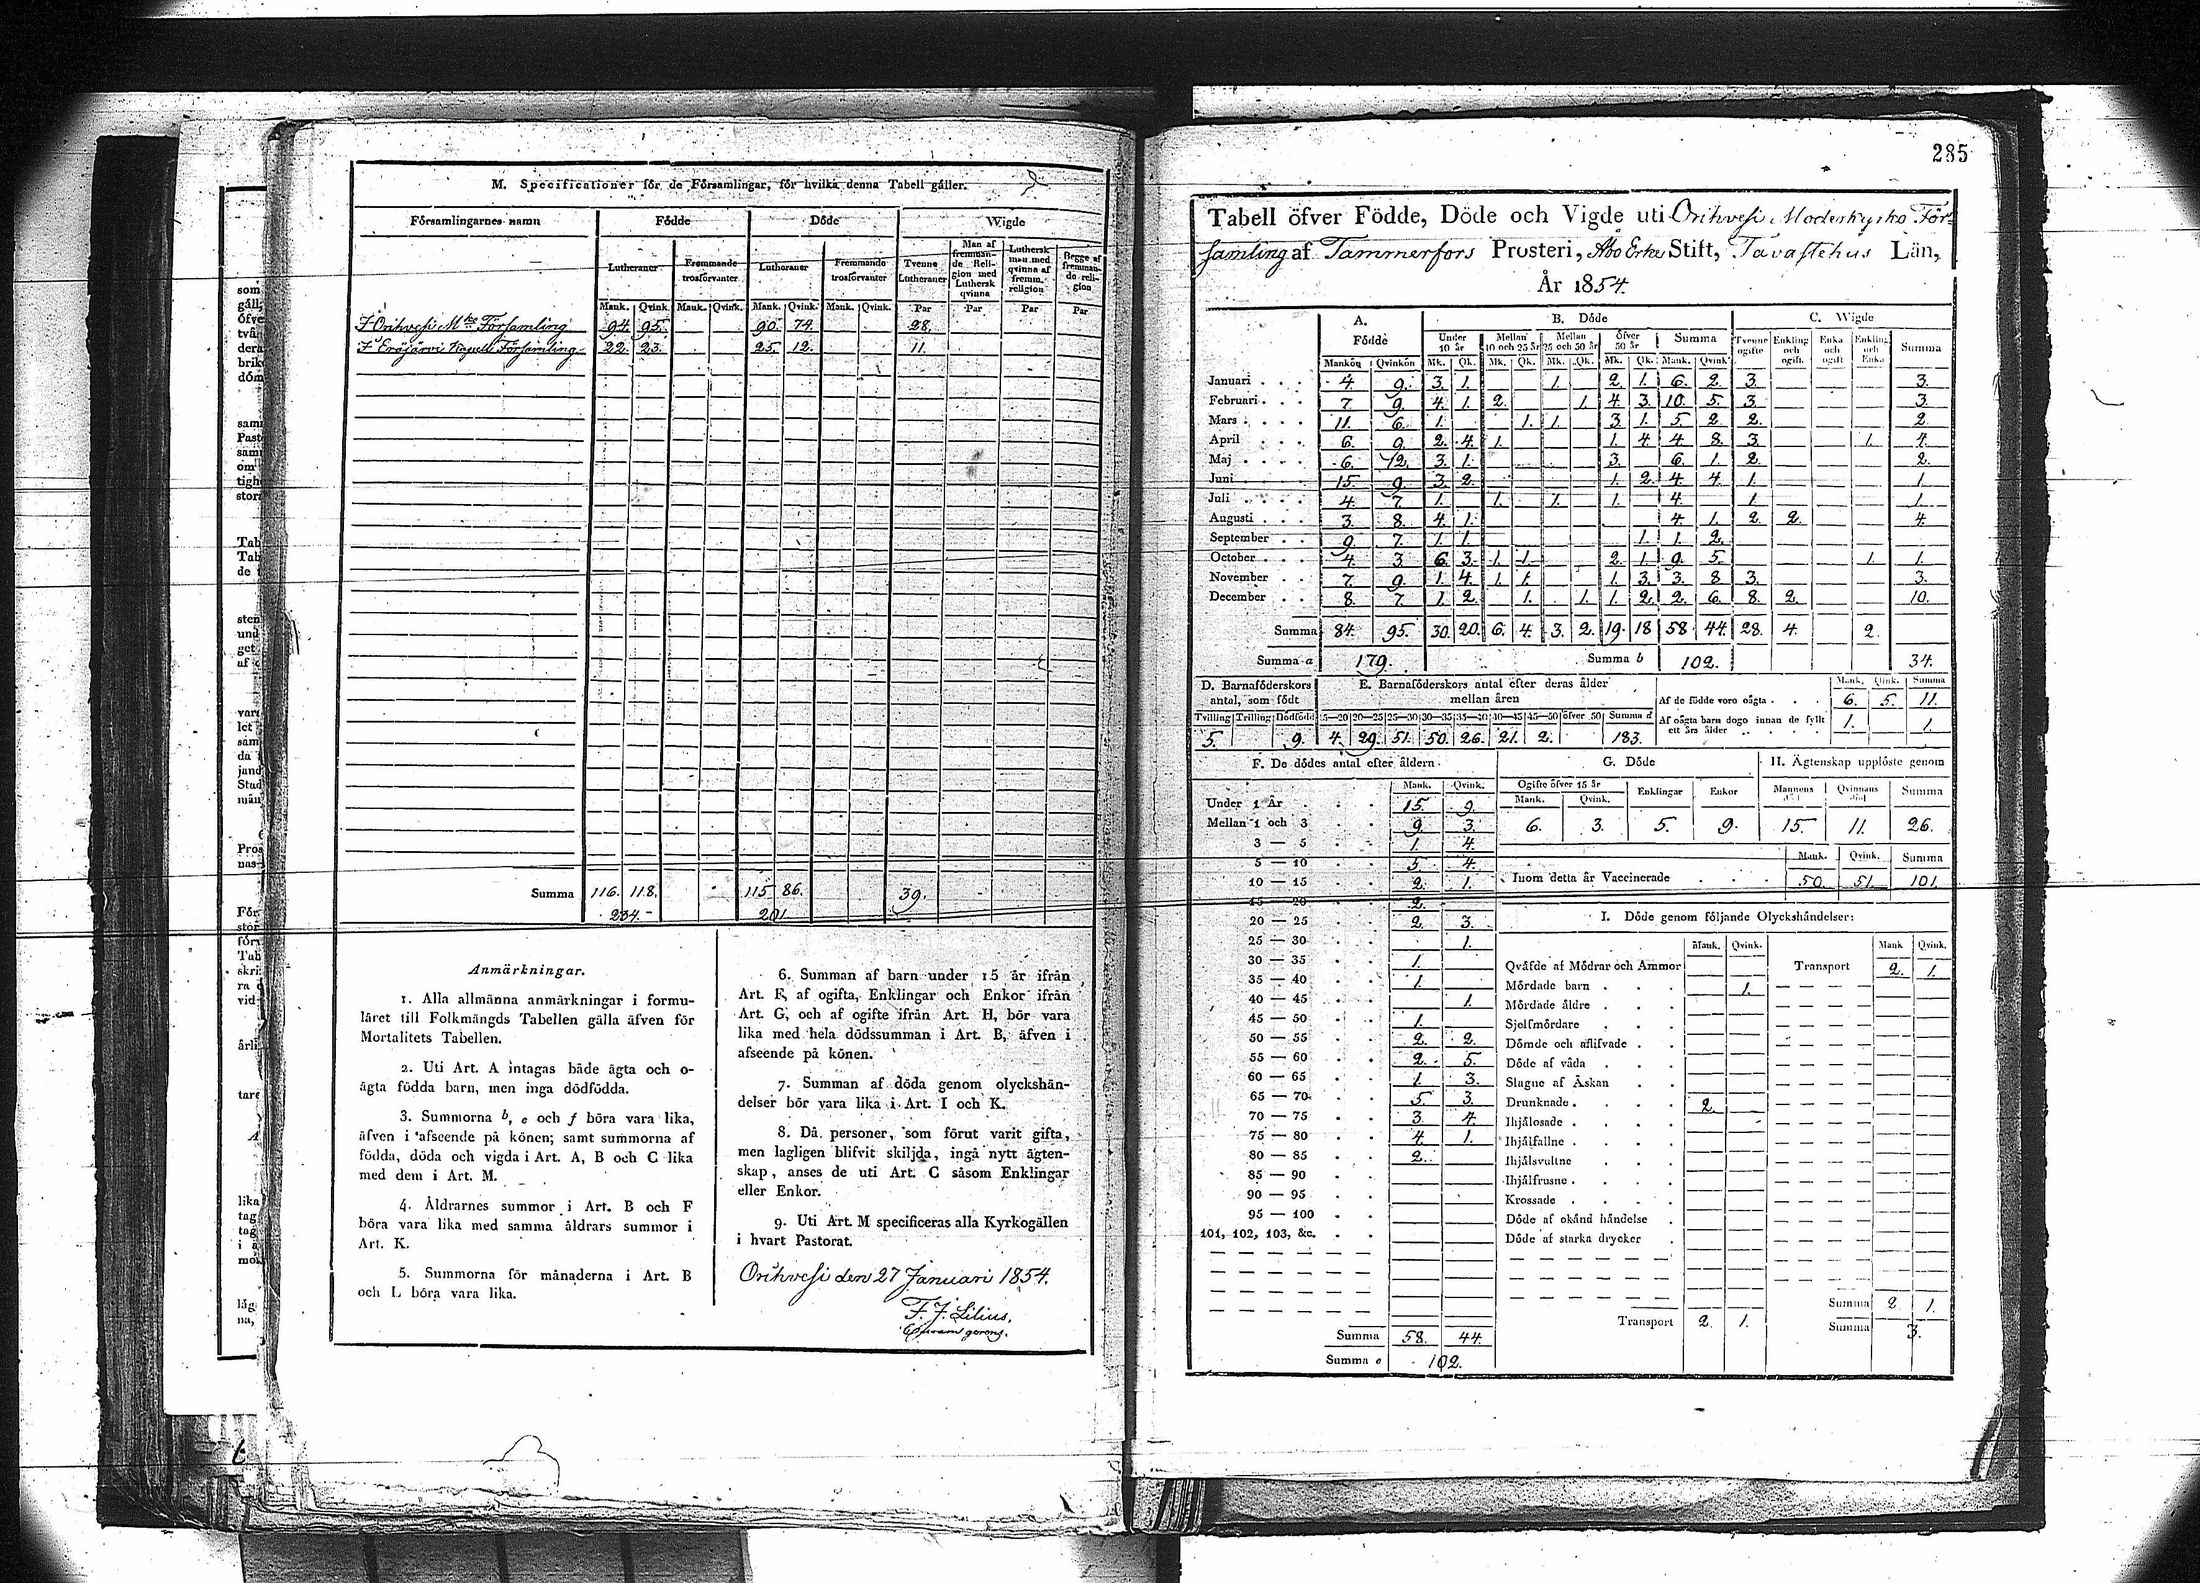 M. Specificationer för de Församlingar, för hvilka denna Tabell gäller.
Församlingarnes namn Födde Döde Wigde
Lutheraner Fremmande trosförvanter Lutheraner Fremmande trosförvanter Tvenne Lutheraner Man af fremmande Religion med Luthersk qvinna Luthersk man med qvinna af fremm. religion Begge af fremmande religion
Mank. Qvink. Mank. Qvink. Mank. Qvink. Mank. Qvink. Par Par Par Par
I Orihvesi Mke Församling 94. 95. 90. 74. 28.
I Eräjärvi Kapell Församling 22. 23. 25. 12. 11.
Summa 116. 118. 115 86. 39.
234.- 201
Anmärkningar.
1. Alla allmänna anmärkningar i formu-
läret till Folkmängds Tabellen gälla äfven för
Mortalitets Tabellen.
2. Uti Art. A intagas både ägta och o-
ägta födda barn, men inga dödfödda.
3. Summorna b, e och f böra vara lika,
äfven i afseende på könen; samt summorna af
födda, döda och vigda i Art. A, B och C lika
med dem i Art. M.
4. Åldrarnes summor i Art. B och F
böra vara lika med samma åldrars summor i
Art. K.
5. Summorna för månaderna i Art. B
och L böra vara lika.
6. Summan af barn under 15 år ifrån
Art. F, af ogifta, Enklingar och Enkor ifrån
Art. G, och af ogifte ifrån Art. H, bör vara
lika med hela dödssumman i Art. B, äfven i
afseende på könen.
7. Summan af döda genom olyckshän-
delser bör vara lika i Art. I och K.
8. Då personer, som förut varit gifta,
men lagligen blifvit skiljda, ingå nytt ägten-
skap, anses de uti Art. C såsom Enklingar
eller Enkor.
9. Uti Art. M specificeras alla Kyrkogällen
i hvart Pastorat.
Orihvesi den 27 Januari 1854.
F. J. Lilius,
285
Tabell öfver Födde, Döde och Vigde uti Orihvesi Moderkyrko För-
samling af Tammerfors Prosteri, Åbo Erke Stift, Tavastehus Län,
År 1854.
A. Födde B. Döde C. Wigde
Under 10 år Mellan 10 och 25 år Mellan 25 och 50 år Öfver 50 år Summa Tvenne ogifte Enkling och ogift Enka och ogift Enkling och Enka Summa
Mankön Qvinkön Mk. Qk. Mk. Qk. Mk. Qk. Mk. Qk. Mank. Qvink.
Januari 4. 9. 3. 1. 1. 2. 1. 6. 2. 3. 3.
Februari 7. 9. 4. 1. 2. 1. 4. 3. 10. 5. 3. 3.
Mars 11. 6. 1. 1. 1. 3. 1. 5. 2. 2. 2.
April 6. 9. 2. 4. 1. 1. 4. 4. 8. 3. 1. 4.
Maj 6. 12. 3. 1. 3. 6. 1. 2. 2.
Juni 15. 9. 3. 2. 1. 2. 4. 4. 1. 1.
Juli 4. 7. 1. 1. 1. 1. 4. 1. 1.
Augusti 3. 8. 4. 1. 4. 1. 2. 2. 4.
September 9. 7. 1. 1. 1. 1. 2.
October 4. 3. 6. 3. 1. 1. 2. 1. 9. 5. 1. 1.
November 7. 9. 1. 4. 1. 1. 1. 3. 3. 8 3. 3.
December 8. 7. 1. 2. 1. 1. 1. 2. 2. 6. 8. 2. 10.
Summa 84. 95. 30. 20. 6. 4. 3. 2. 19. 18 58 44. 28. 4. 2.
Summa a 179. Summa b 102. 34.
D. Barnaföderskors antal, som födt E. Barnaföderskors antal efter deras ålder mellan åren
Tvilling Trilling Dödfödd 15—20 20—25 25—30 30—35 35—40 40—45 45—50 öfver 50 Summa d
5. 9. 4. 29. 51. 50. 26. 21. 2. 183.
Mank. Qvink. Summa
Af de födde voro oägta 6. 5. 11.
Af oägta barn dogo innan de fyllt ett års ålder 1. 1.
F. De dödes antal efter åldern
Mank. Qvink.
Under 1 År 15. 9.
Mellan 1 och 3 9. 3.
3 — 5 1. 4.
5 — 10 5. 4.
10 — 15 2. 1.
15 — 20 2.
20 — 25 2. 3.
25 — 30 1.
30 — 35 1.
35 — 40 1.
40 — 45 1.
45 — 50 1.
50 — 55 2. 2.
55 — 60 2. 5.
60 — 65 1. 3.
65 — 70 5. 3.
70 — 75 3. 4.
75 — 80 4. 1.
80 — 85 2.
85 — 90
90 — 95
95 — 100
101, 102, 103, &c.
Summa 58. 44.
Summa e 102.
G. Döde H. Ägtenskap upplöste genom
Ogifte öfver 15 år Enklingar Enkor Mannens död Qvinnans död Summa
Mank. Qvink.
6. 3. 5. 9. 15. 11. 26.
Mank. Qvink. Summa
Inom detta år Vaccinerade 50. 51. 101.
I. Döde genom följande Olyckshändelser:
Mank. Qvink. Mank Qvink.
Qväfde af Mödrar och Ammor Transport 2. 1.
Mördade barn 1.
Mördade äldre
Sjelfmördare
Dömde och aflifvade
Döde af våda
Slagne af Åskan
Drunknade 2.
Ihjälosade
Ihjälfallne
Ihjälsvultne
Ihjälfrusne
Krossade
Döde af okänd händelse
Döde af starka drycker
Summa 2. 1.
Transport 2. 1. Summa 3.